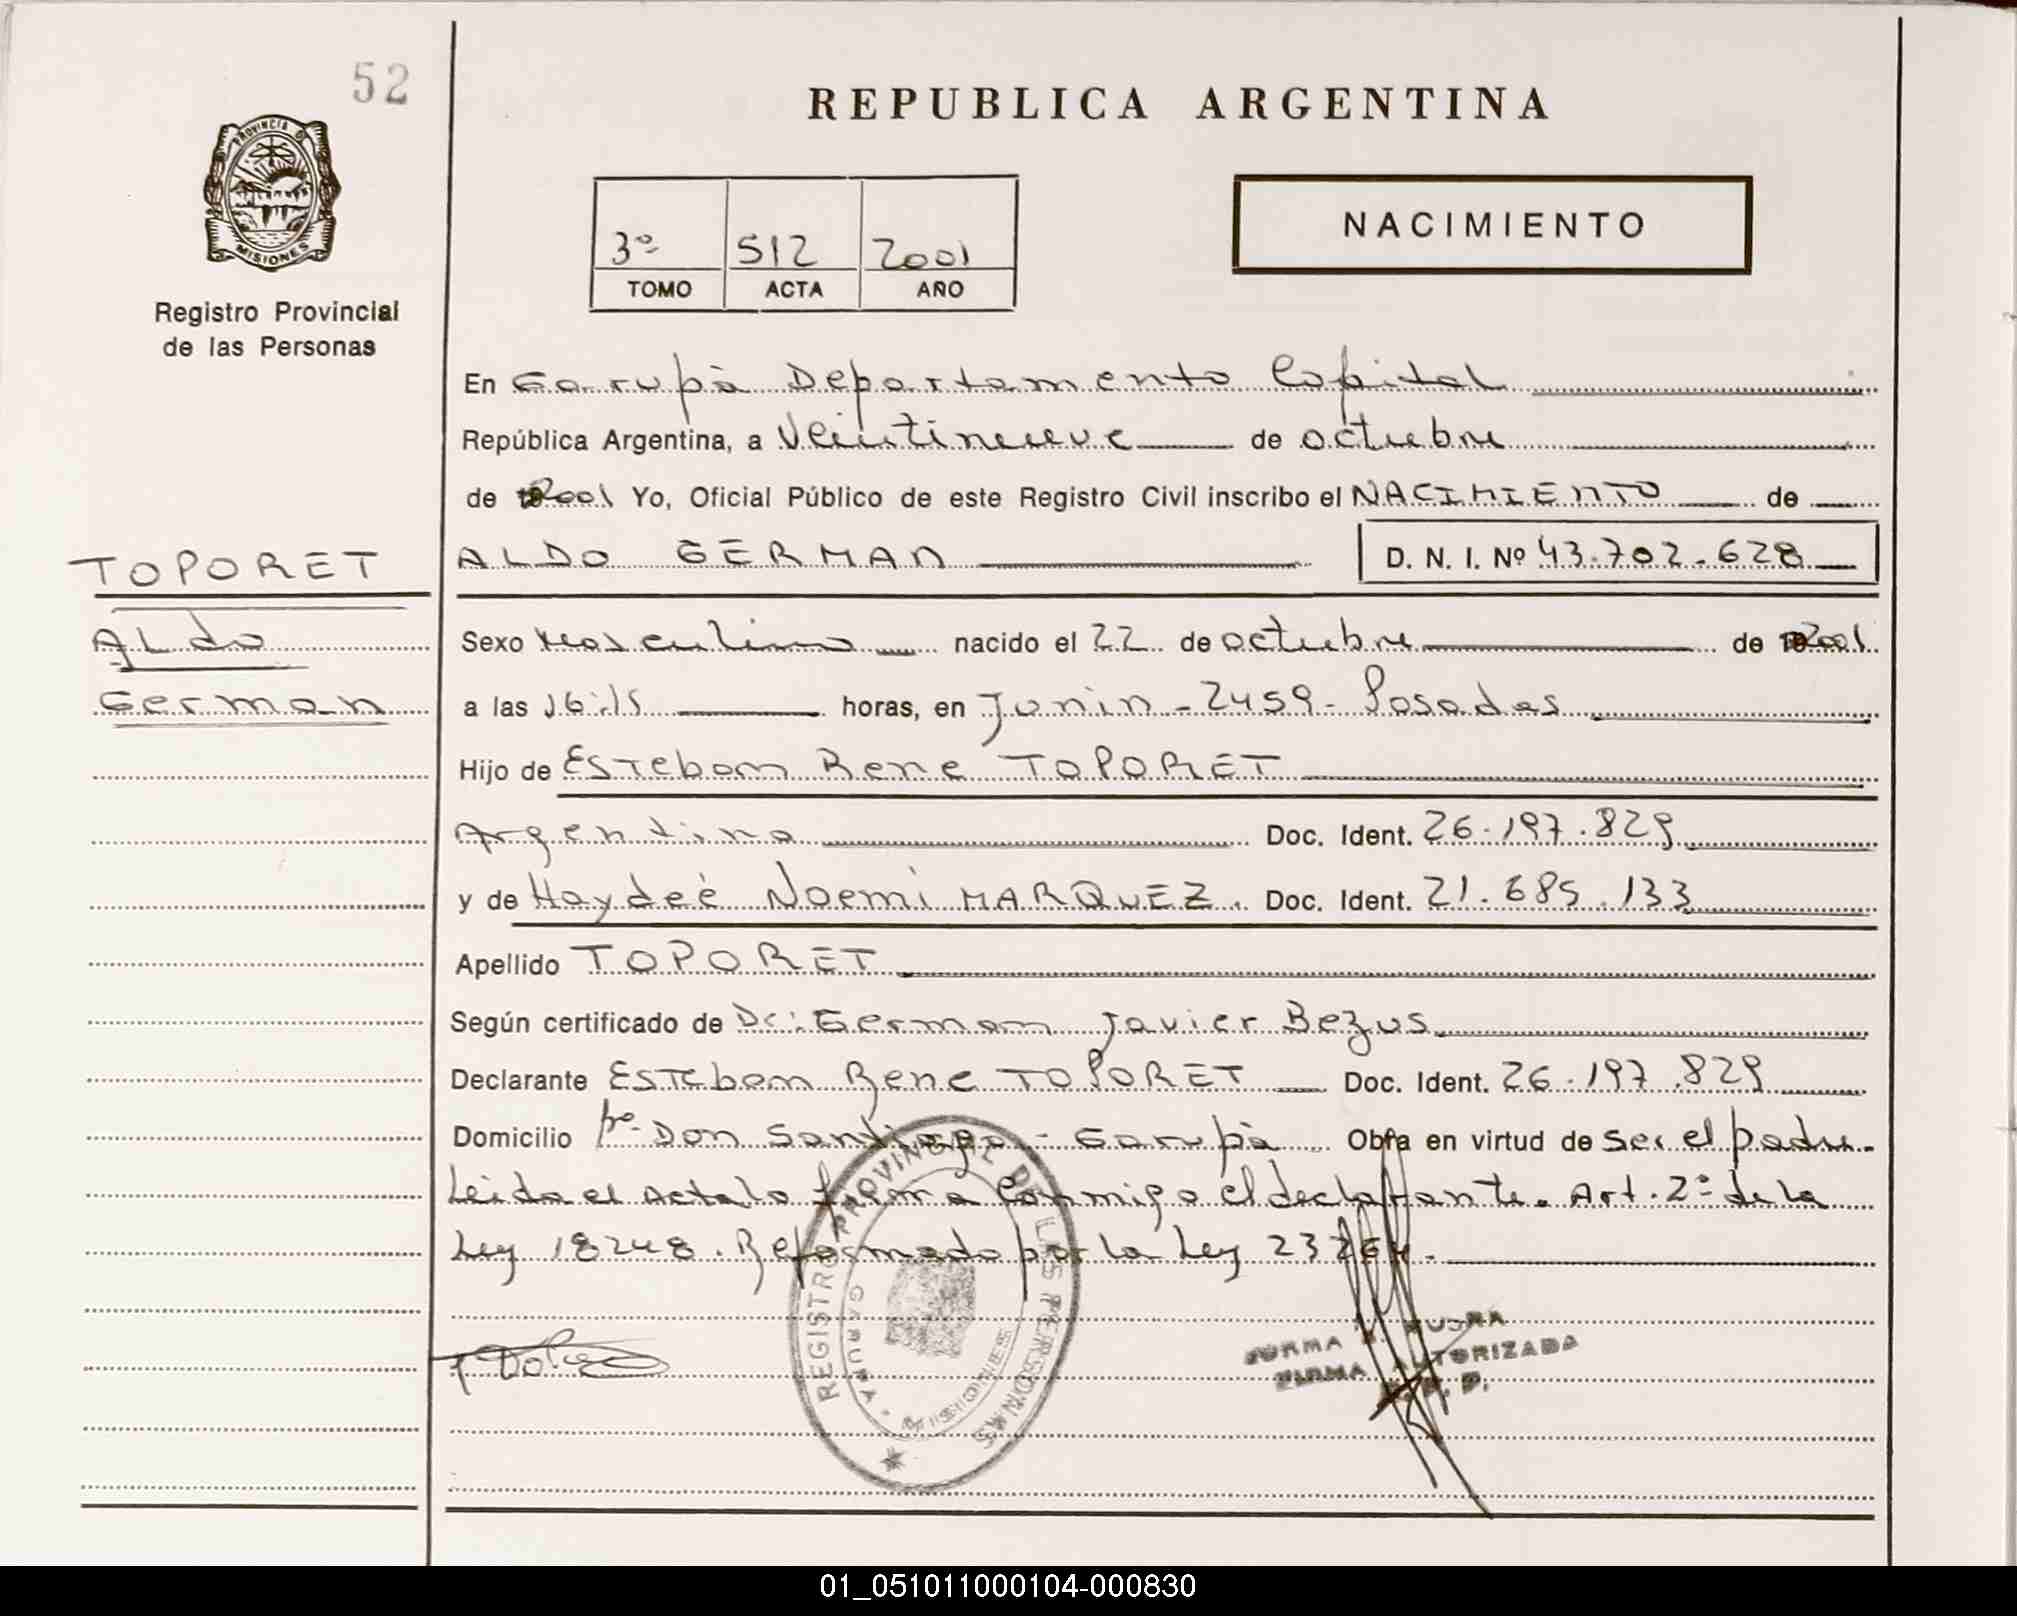 52
PROVINCIA D
MISIONES
Registro Provincial
de las Personas
REPUBLICA ARGENTINA
3º 512 2001
TOMO ACTA AÑO
NACIMIENTO
En Garupà Departamento Capital
República Argentina, a Veintinueve de octubre
de 2001 Yo, Oficial Público de este Registro Civil inscribo el NACIMIENTO de
TOPORET
ALDO GERMAN D. N. I. Nº 43.702.628
Aldo
Sexo Masculino nacido el 22 de octubre de 2001
German
a las 16:15 horas, en Junin - 2459 - Posadas
Hijo de Esteban Rene TOPORET
Argentina Doc. Ident. 26.197.829
y de Haydeè Noemi MARQUEZ. Doc. Ident. 21.685.133
Apellido TOPORET
Según certificado de Dr: German Javier Bezus
Declarante Esteban Rene TOPORET Doc. Ident. 26.197.829
Domicilio Bº Don Santiago - Garupà Obra en virtud de ser el padre.
Leida el Acta la firma conmigo el declarante. Art. 2º de la
Ley 18248. Reformado por la Ley 23264.
REGISTRO PROVINCIAL DE LAS PERSONAS
GARUPA - MISIONES
FIRMA AUTORIZADA
R. P. P.
01_051011000104-000830